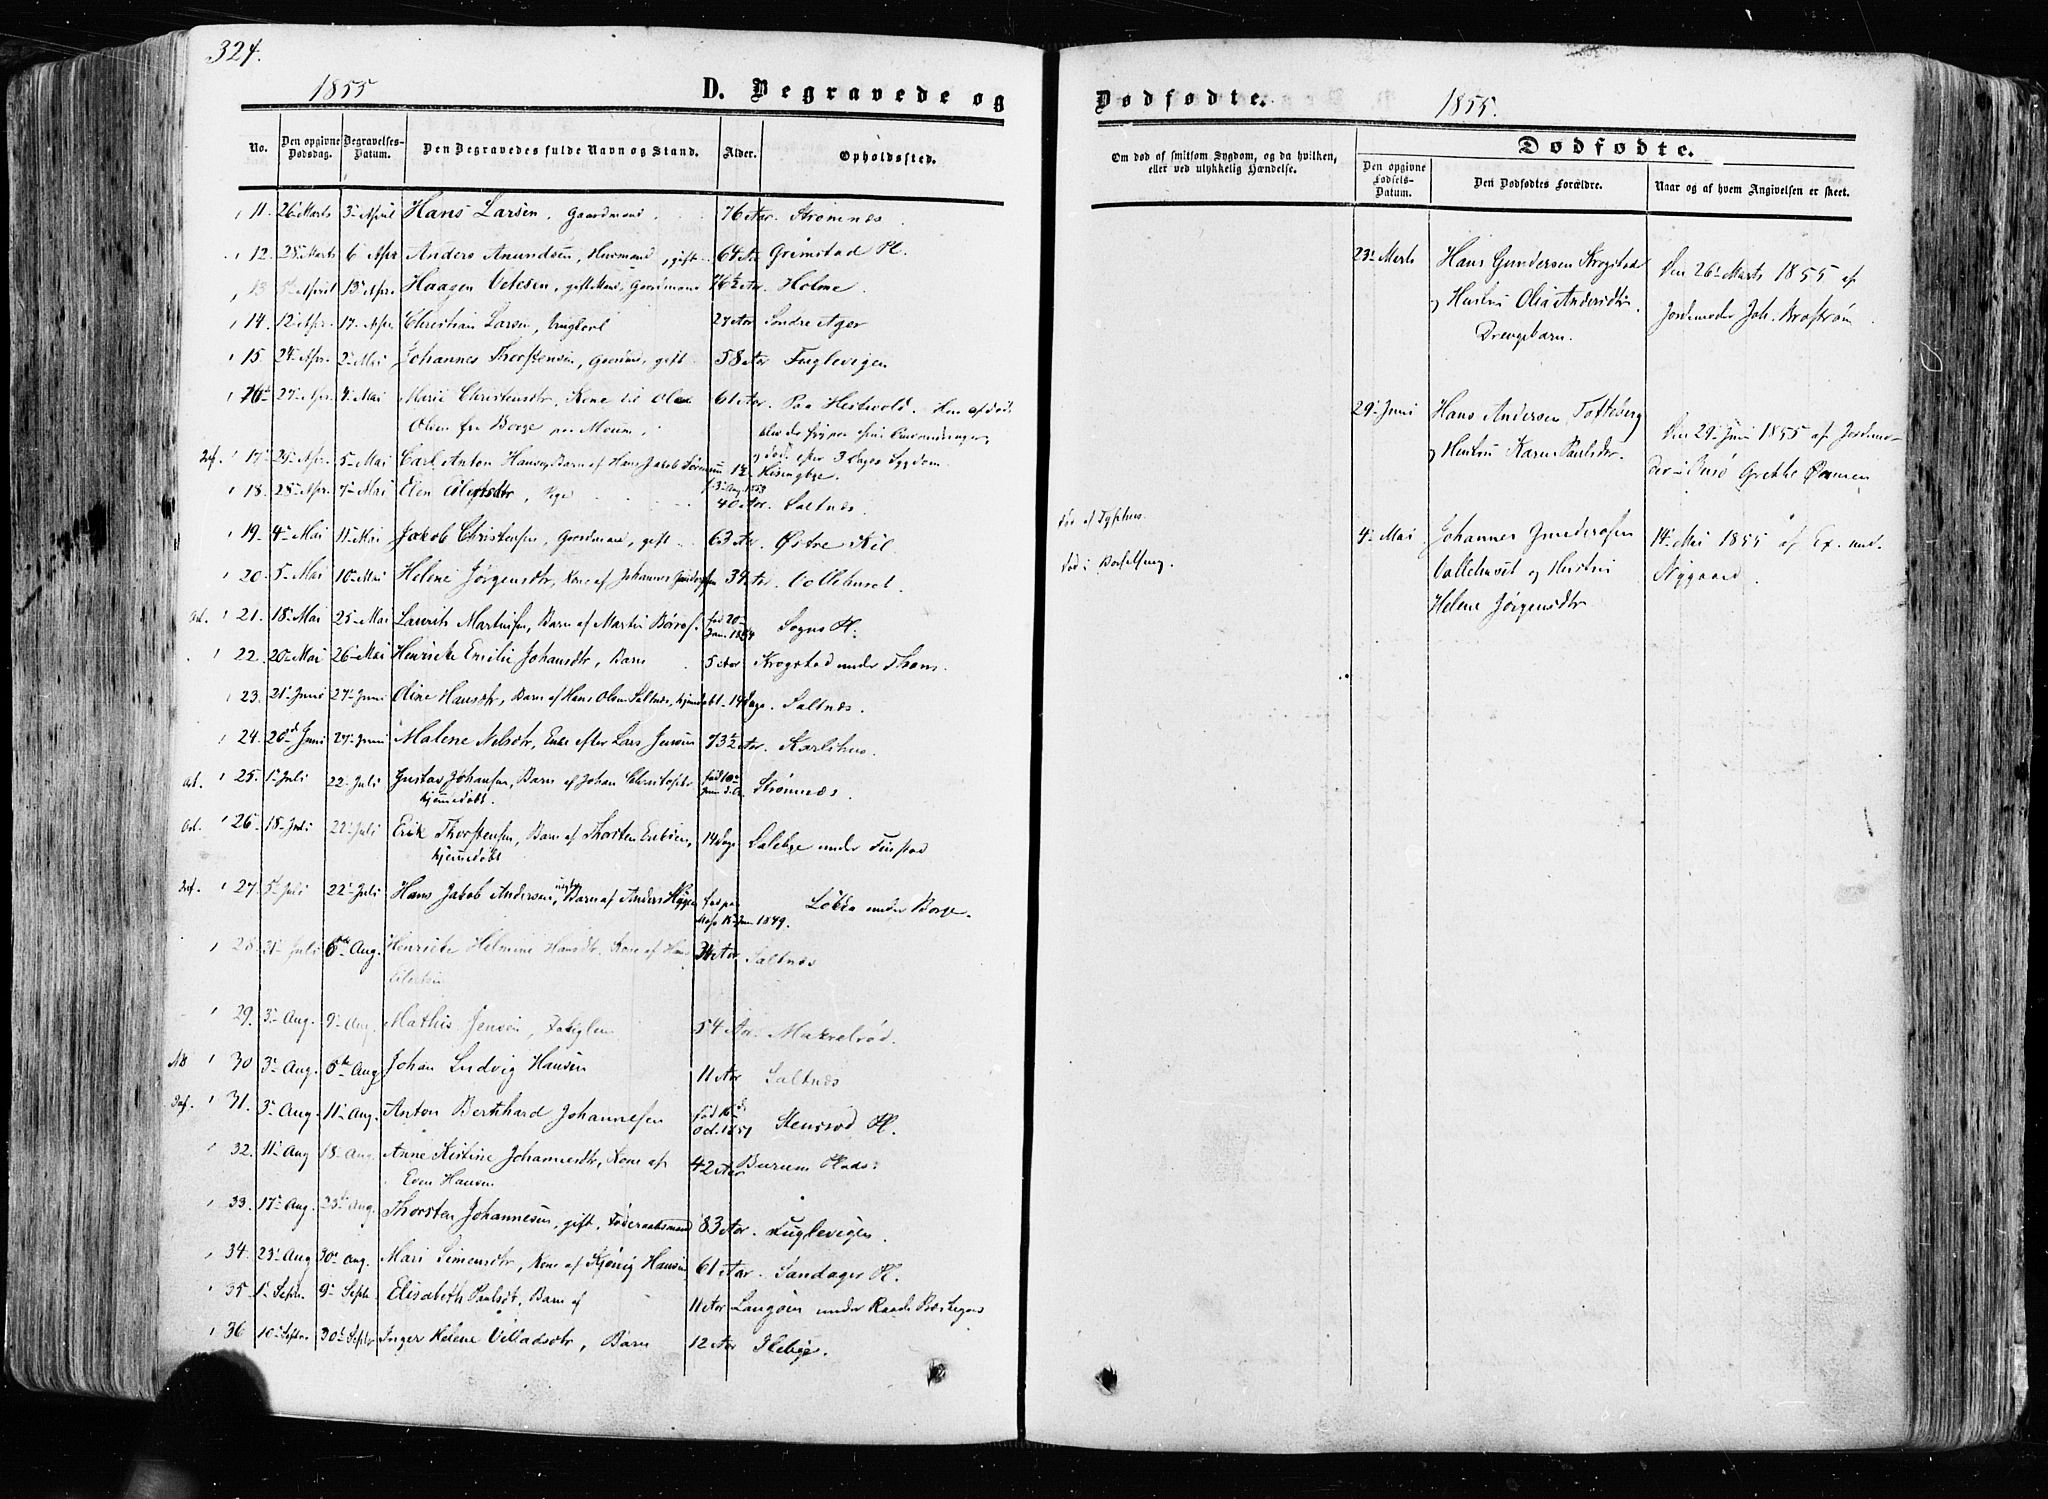 324.
1855
D. Begravede og
No. Den opgivne Dødsdag. Begravelses-Datum. Den Begravedes fulde Navn og Stand. Alder. Opholdssted.
11. 26 Marts 3 April Hans Larsen, Gaardmand. 76 Aar. Strømnæs.
12. 28 Marts 6 Apr Anders Amundsen, Huusmand, gift 64 Aar Grimstad Pl.
13 5 April 13 Apr. Haagen 76½ Aar. Holme.
14. 12 Apr. 17 Apr. Christian Larsen, Ungkarl 27 Aar Søndre Ager
15. 24 Apr. 2 Mai Johannes Thorstensen, gift 58 Aar Fuglevigen
16 27 Apr. 4 Mai Marie Christensdtr, Kone til Ole 61 Aar. Paa Hestvold.
Olsen fra Borge
og død efter 3 Dages Sygdom
17 29 Apr. 5 Mai Carl Anton Hansen, Barn af Hans Jakob 1½
18. 28 Apr. 7 Mai Elen Olertsdtr, Pige 40 Aar. Saltnæs.
19. 4 Mai 11 Mai Jakob Christensen, Gaardmand, gift 63 Aar. Østre Kil
20. 5 Mai 10 Mai Helene Jørgensdtr, Kone af Johannes Gundersen 39 Aar. Vallehuset.
21. 18 Mai 25 Mai Laurits Martinsen, Barn af Martin født 20 Jan. 1854 Sogns Pl.
22. 20 Mai 26 Mai Henriette Emilie Johansdtr, Barn 5 Aar Krogstad under Thoms.
23. 21 Juni 27 Juni Oline Hansdtr, Barn af Hans Olsen Saltnæs, hjemdøbt 14 Dage. Saltnæs.
24. 20 Juni 27 Juni Malene Nelsdtr, Enke efter Lars Jensen 73½ Aar. Karlshus.
25. 1 Juli 22 Juli Gustav Johansen, Barn af Johan Christophr født 10 Strømnæs.
hjemmedøbt.
26. 18 Juli 22 Juli Erik Thorstensen, Barn af Thorsten Eriksen, 14 Dage Salebye under
hjemmedøbt
27. 5 Juli 22 Juli Hans Jakob Andersen, Barn af Anders 1849. under Borge.
28. 31 Juli 5te Aug. Henriette Helmine Hansdtr. Kone af Hans 34 Aar Saltnæs
29. 3 Aug. 9 Aug. Mathis Jensen, 54 Aar. Makrelrød.
NB 30 3 Aug. 5te Aug Johan Ludvig Hansen 11 Aar Saltnæs
31. 3 Aug. 11 Aug. Anton Bernhard Johannesen født 15 Oct. 1851 Stensrød Pl.
32. 11 Aug 18 Aug. Anne Kistine Johannesdtr, Kone af 42 Aar Burum Plads.
Even Hansen
33. 17 Aug. Aug. Thorsten Johannesen, gift, Føderaadsmand 83 Aar. Fuglevigen.
34. 23 Aug 30 Aug. Mari Simensdtr, Kone af Kjønig Hansen 61 Aar. Sandager Pl.
35 1 Septr. 9 Septr. Elisabeth Paulsdt, Barn af 11 Aar Langøen under Raade Præstegjeld
36 10 Septbr 30 Septbr Inger Helene Villadsdtr, Barn 12 Aar Ilebye.
Dødfødte.
1855.
Om død af smitsom Sygdom, og da hvilken, eller ved ulykkelig Hændelse.
Dødfødte.
Den opgivne Fødsels-Datum. Den Dødfødtes Forældre. Naar og af hvem Angivelsen er skeet.
23 Marts Hans Gundersen Krogstad Den 26 Marts 1855 af
og Hustru Olea Andersdtr. Jordemoder Joh. Brostrøm.
Drengebarn.
29 Juni Hans Andersen Tofteberg Den 29 Juni 1855 af Jordemo-
og Hustru Karen Paulsdtr. der Grethe
død af Typhus.
død i Barselseng.
4 Mai Johannes Gundersen 14 Mai 1855 af Ex. med.
Vallehuset og Hustru Nygaard.
Helene Jørgensdtr